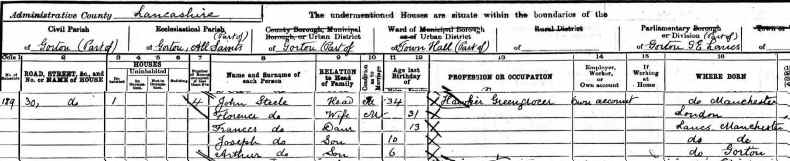 Administrative County Lancashire The undermentioned Houses are situate within the boundaries of the
Civil Parish Ecclesiastical Parish County Borough, Municipal Borough, or Urban District Ward of Municipal Borough or of Urban District Rural District Parliamentary Borough or Division
of Gorton (Part of) of Gorton, All Saints (Part of) of Gorton (Part of) of Town Hall (Part of) of of Gorton
Cols. 1 2 3 4 5 6 7 8 9 10 11 12 13 14 15 16
ROAD, STREET, &c., and No. or NAME of HOUSE HOUSES Inhabited Uninhabited Building Name and Surname of each Person RELATION to Head of Family Condition as to Marriage Age last Birthday of PROFESSION OR OCCUPATION Employer, Worker, or Own account If Working at Home WHERE BORN
189 30, do 1 4 John Steele Head M 34 Hawker Greengrocer own account do Manchester
Florence do Wife M 31 London
Frances do Daur 13 Lancs. Manchester
Joseph do Son 10 do do
Arthur do Son 6 do Gorton